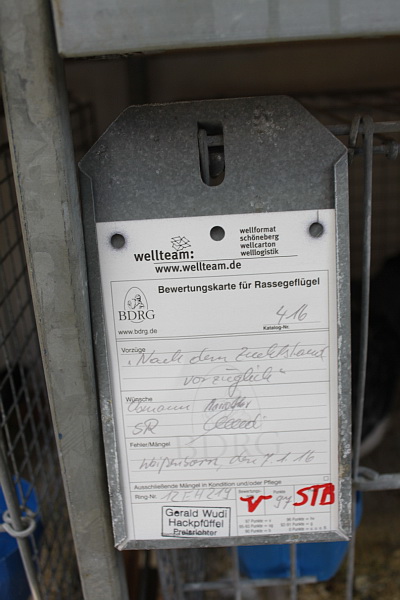 wellteam:
wellformat
schöneberg
wellcarton
welllogistik
www.wellteam.de
Bewertungskarte für Rassegeflügel
BDRG
www.bdrg.de
416
Katalog-Nr.
Vorzüge
"Nach dem Zuchtstand
vorzüglich"
Wünsche
Obmann
SR
Fehler/Mängel
den 7.1.16
Ausschließende Mängel in Kondition und/oder Pflege
Ring-Nr.
Bewertungs-
Punkte
v 97 STB
Gerald Wudi
Hackpfüffel
Preisrichter
BDRG